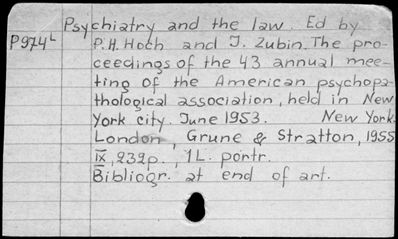 Psychiatry and the law. Ed by
P974L P.H. Hoch and J. Zubin. The pro-
ceedings of the 43 annual mee-
ting of the American psychopa-
thological association, held in New
York city. June 1953. New York.
London, Grune & Stratton, 1955
IX, 232p., 1L. portr.
Bibliogr. at end of art.